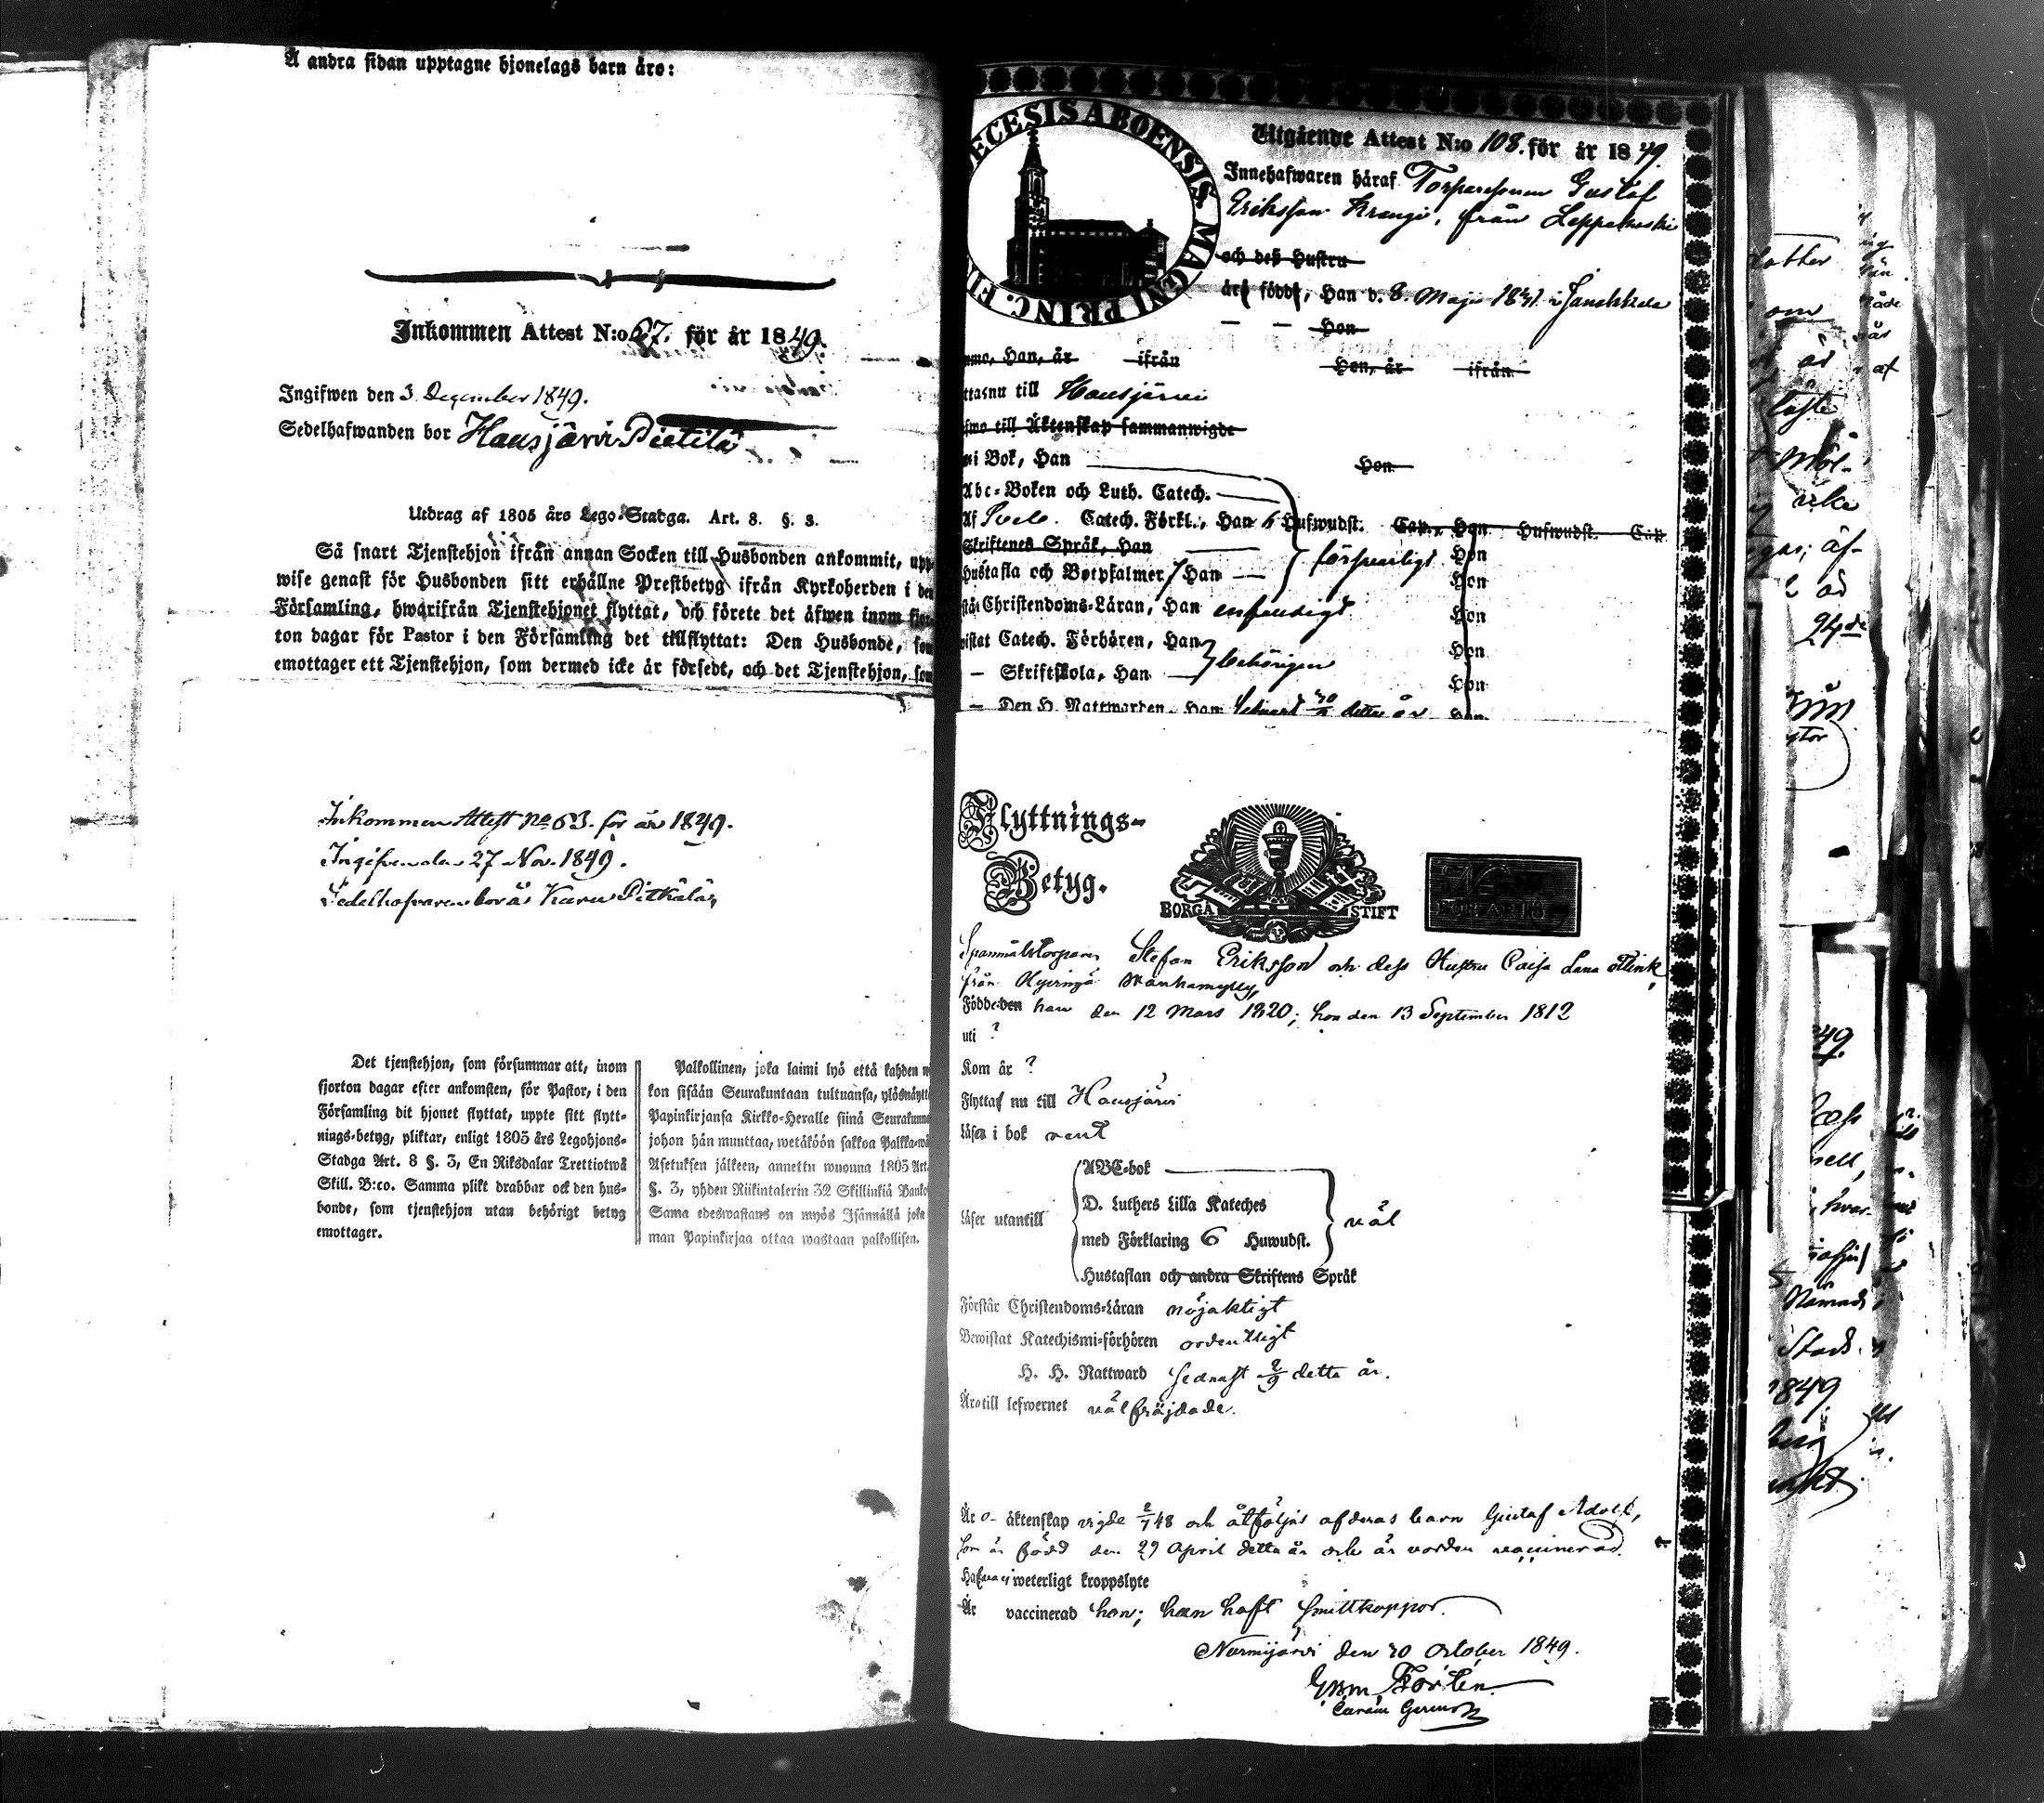 Å andra sidan upptagne hjonelags barn äro:
Inkommen Attest N:o 67. för år 1849.
Ingifwen den 3 December 1849.
Sedelhafwanden bor Hausjärvi Pietilä
Utdrag af 1805 års Lego-Stadga. Art. 8. §. 3.
Så snart Tjenstehjon ifrån annan Socken till Husbonden ankommit, upp-
wise genast för Husbonden sitt erhållne Prestbetyg ifrån Kyrkoherden i den
Församling, hwarifrån Tjenstehjonet flyttat, och förete det äfwen inom fjor-
ton dagar för Pastor i den Församling det tillflyttat: Den Husbonde, som
emottager ett Tjenstehjon, som dermed icke är försedt, och det Tjenstehjon, som
Inkommen Attest No 63. för år 1849.
Ingifven den 27 Nov. 1849.
Sedelhafvaren bor å Karu Pitkälä
Det tjenstehjon, som försummar att, inom
fjorton dagar efter ankomsten, för Pastor, i den
Församling dit hjonet flyttat, uppte sitt flytt-
nings-betyg, pliktar, enligt 1805 års Legohjons-
Stadga Art. 8 §. 3, En Riksdalar Trettiotwå
Skill. B:co. Samma plikt drabbar ock den hus-
bonde, som tjenstehjon utan behörigt betyg
emottager.
Palkollinen, joka laimi lyö että kahden
kon sisään Seurakuntaan tultuansa, ylösnäyttä
Papinkirjansa Kirkko-Heralle siinä Seurakunna
johon hän muuttaa, wetäköön sakkoa Palkka-wä
Asetuksen jälkeen, annettu wuonna 1805 Art.
§. 3, yhden Riikintalerin 32 Skillinkiä Banko
Sama edeswastaus on myös Isännällä joka
man Papinkirjaa ottaa wastaan palkollisen.
ECESIS ABOENSIS. MAGNI PRINC. FIN
Utgående Attest N:o 108. för år 1849.
Innehafwaren häraf Torparesonen Gustaf
Eriksson Krangi, från Leppäkoski
och deß Hustru
äro födde, Han d. 8. Maji 1831. i Janakkala
Hon
Han, är ifrån Hon, är ifrån
nu till Hausjärvi
till Äktenskap sammanwigde
i Bok, Han Hon
Abc-Boken och Luth. Catech.
Af Svebe. Catech. Förkl., Han 6 Hufwudst. Cat., Hon Hufwudst. Cat.
Skriftenes Språk, Han försvarligt Hon
Hustafla och Botpsalmer, Han Hon
Christendoms-Läran, Han enfaldigt Hon
Catech. Förhören, Han Hon
— Skriftskola, Han behörigen Hon
— Den H. Nattwarden, Han detta år Hon
Flyttnings-
Betyg.
BORGÅ STIFT
Spannmålstorparen Stefan Eriksson och dess Hustru Caisa Lena Flink,
från Hyvinge Wanhamylly,
Födde den han den 12 Mars 1820; hon den 13 September 1812
uti ?
Kom år ?
Flyttaf nu till Hausjärvi
Läsa i bok rent
ABC-bok
D. Luthers Lilla Kateches
Läser utantill med Förklaring 6 Huwudst. väl
Hustaflan och andra Skriftens Språk
Förstår Christendoms-Läran nöjaktigt
Bewistat Katechismi-förhören ordentligt
H. H. Nattward sednast 2/9 detta år.
Äro till lefwernet välfräjdade.
Äro äktenskap vigde 2/7 48 och åtföljas af deras barn Gustaf Adolf,
som är född den 29 April detta år och är vorden vaccinerad.
Hafwa ej weterligt kroppslyte
Är vaccinerad hon; han haft smittkoppor.
Nurmijärvi den 20 October 1849.